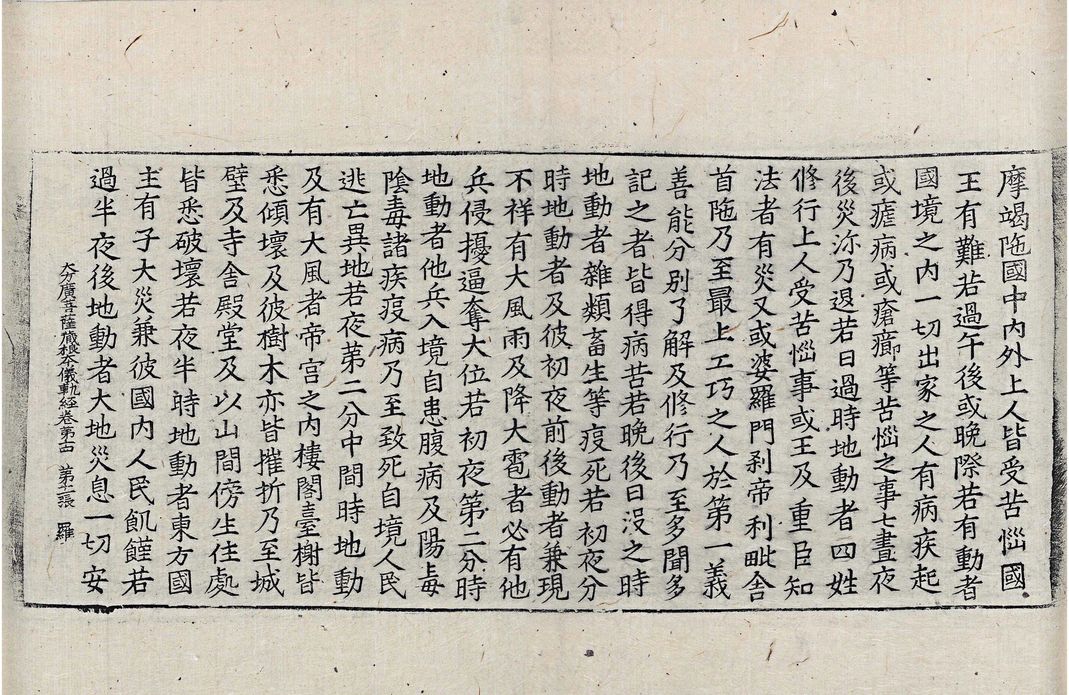 摩竭陁國中內外上人皆受苦惱國
王有難若過午後或晚際若有動者
國境之內一切出家之人有病疾起
或瘧病或瘡癤等苦惱之事七晝夜
後災沴乃退若日過時地動者四姓
修行上人受苦惱事或王及重臣知
法者有災又或婆羅門剎帝利毗舍
首陁乃至最上工巧之人於第一義
善能分別了解及修行乃至多聞多
記之者皆得病苦若晚後日沒之時
地動者雜類畜生等疫死若初夜分
時地動者及彼初夜前後動者兼現
不祥有大風雨及降大雹者必有他
兵侵擾逼奪大位若初夜第二分時
地動者他兵入境自患腹病及陽毒
陰毒諸疾疫病乃至致死自境人民
逃亡異地若夜第二分中間時地動
及有大風者帝宮之內樓閣臺榭皆
悉傾壞及彼樹木亦皆摧折乃至城
壁及寺舍殿堂及以山間傍生住處
皆悉破壞若夜半時地動者東方國
主有子大災兼彼國內人民飢饉若
過半夜後地動者大地災息一切安
大方廣菩薩藏根本儀軌經卷第十四 第十二張 羅